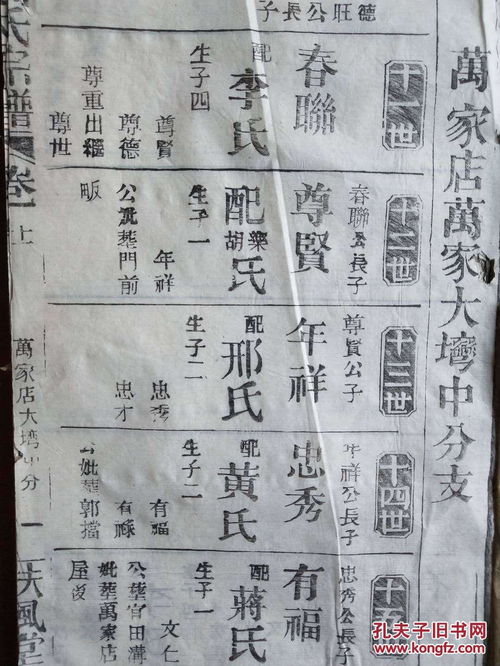 萬家店萬家大塆中分支
德旺公長子
十一世
春聯
配
李氏
生子四
尊賢
尊德
尊重出繼
尊世
十二世
春聯公長子
尊賢
配
胡 樂
氏
生子一
年祥
公妣葬門前
畈
十三世
尊賢公子
年祥
配
邢氏
生子二
忠秀
忠才
十四世
年祥公長子
忠秀
配
黃氏
生子二
有福
有祿
公妣葬郭擋
忠秀公長子
有福
配
蔣氏
生子一
文仁
公葬官田溝
妣葬萬家店
屋後
氏宗譜
卷一
上
萬家店大塆中分
一
扶風堂
孔夫子旧书网
www.kongfz.com